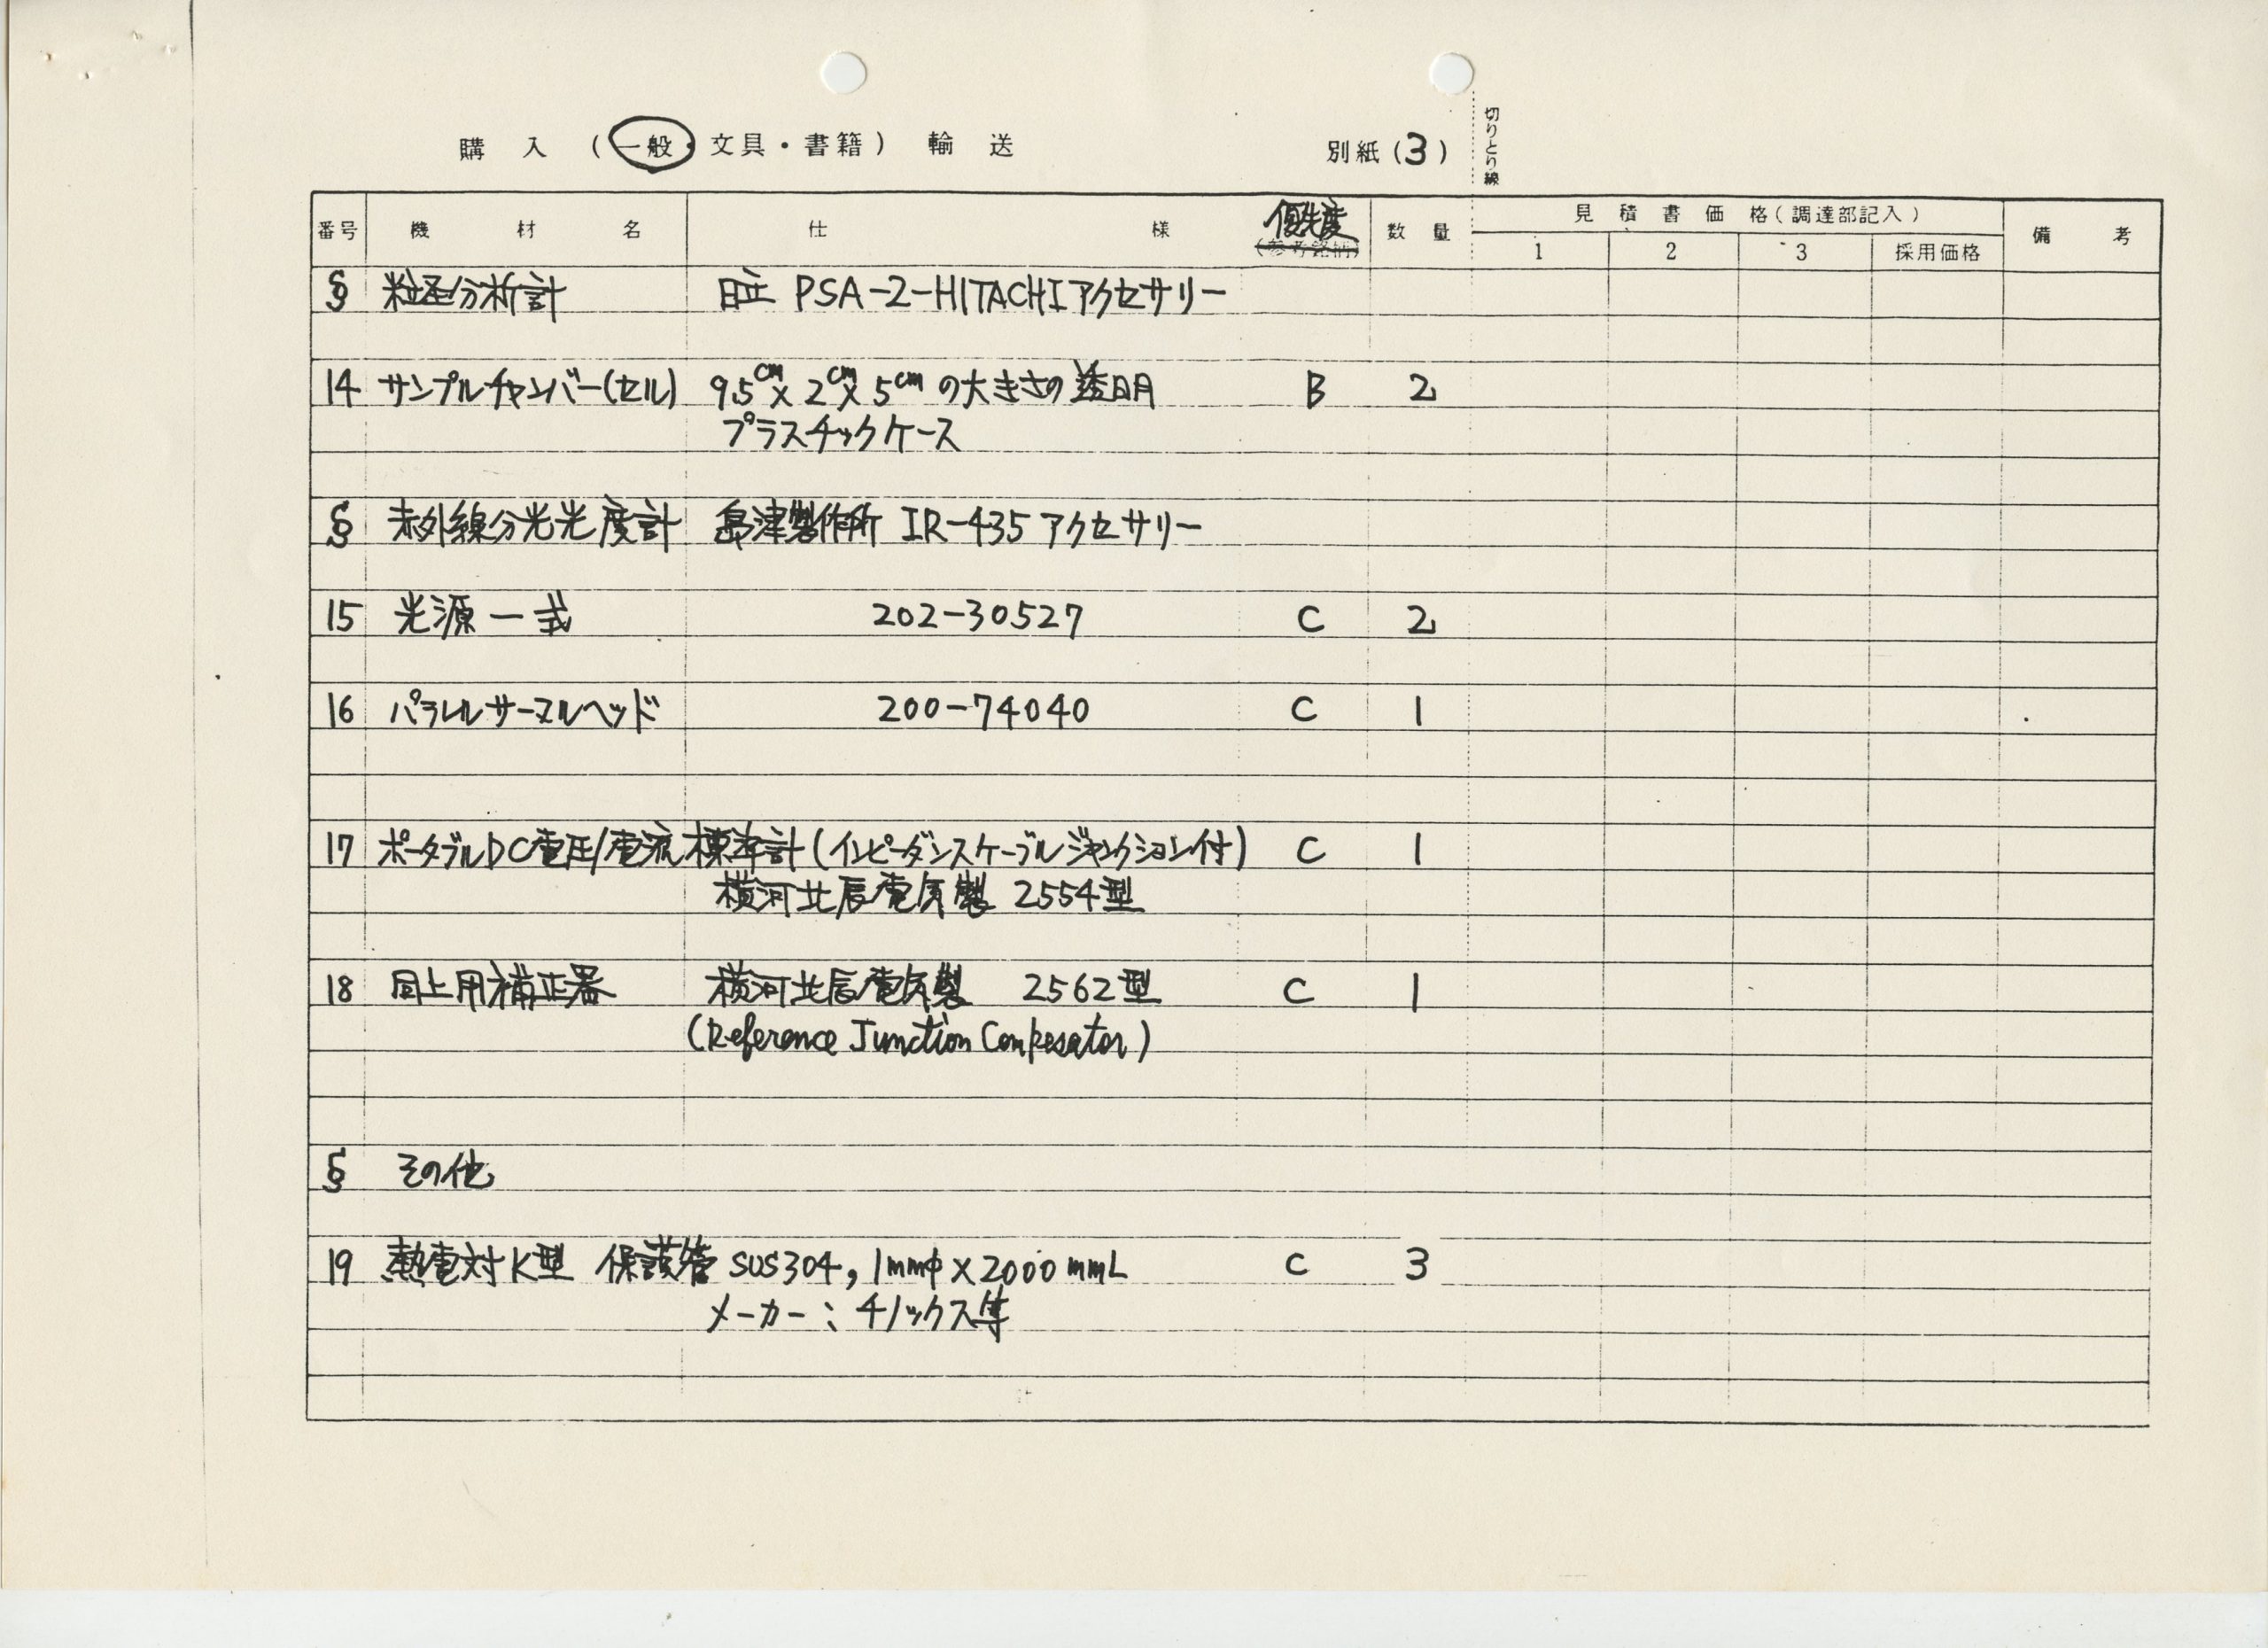 購入(一般・文具・書籍)輸送 別紙(3) 切りとり線
番号 機材名 仕様 優先度 (参考銘柄) 数量 見積書価格(調達部記入) 備考
1 2 3 採用価格
§ 粒径分析計 日立 PSA-2-HITACHIアクセサリー
14 サンプルチャンバー(セル) 9.5cm×2cm×5cmの大きさの透明 B 2
プラスチックケース
§ 赤外線分光光度計 島津製作所 IR-435 アクセサリー
15 光源一式 202-30527 C 2
16 パラレルサーマルヘッド 200-74040 C 1
17 ポータブルDC電圧/電流標準計(インピーダンスケーブルジャンクション付) C 1
横河北辰電気製 2554型
18 同上用補正器 横河北辰電気製 2562型 C 1
(Reference Junction Compesator)
§ その他
19 熱電対K型 保護管 SUS304, 1mmφ×2000mmL C 3
メーカー:チノックス等